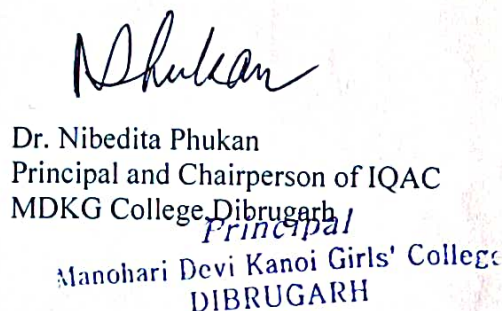 NPhukan
Dr. Nibedita Phukan
Principal and Chairperson of IQAC
MDKG College,Dibrugarh
Principal
Manohari Devi Kanoi Girls' College
DIBRUGARH